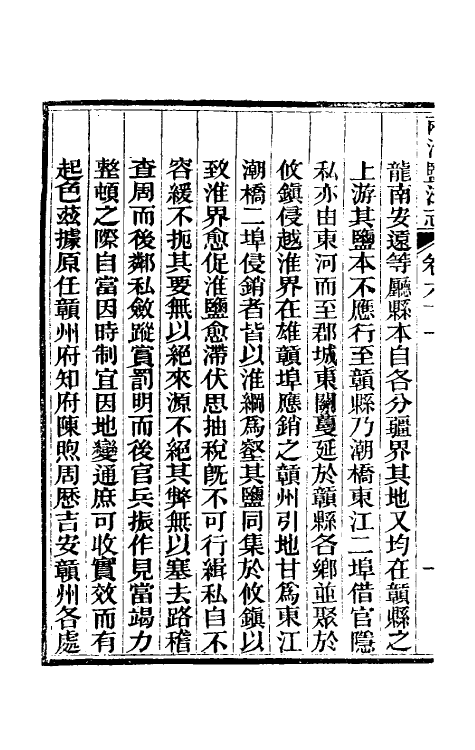 龍南安遠等廳縣本自各分疆界其地又均在贛縣之
上游其鹽本不應行至贛縣乃潮橋東江二埠借官隱
私亦由東河而至郡城東關蔓延於贛縣各鄉並聚於
攸鎭侵越淮界在雄贛埠應銷之贛州引地甘爲東江
潮橋二埠侵銷者皆以淮綱爲壑其鹽同集於攸鎭以
致淮界愈促淮鹽愈滯伏思抽稅旣不可行緝私自不
容緩不扼其要無以絕來源不絕其弊無以塞去路稽
查周而後鄰私斂蹤賞罰明而後官兵振作見當竭力
整頓之際自當因時制宜因地變通庶可收實效而有
起色茲據原任贛州府知府陳煦周歷吉安贛州各處